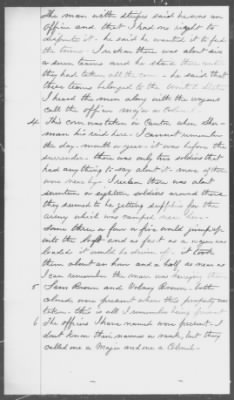 The man with stripes said he was an
officer and that I had no right to
dispute it - he said he wanted it to feed
the teams - I reckon there was about six
or seven teams and he stood there until
they had taken all the corn - he said that
these teams belonged to the United States
I heard the men along with the wagons
call the officer
4 This corn was taken in Canton when Sher-
man his raid here - I cannot remember
the day - month or year - it was before the
surrender - there was only two soldiers that
had anything to say about it - more of them
were near by - I reckon there was about
seventeen or eighteen soldiers around there
they seemed to be getting supplies for the
army which was camped near here -
Some three or four or five would jump up
into the loft and as fast as a wagon was
loaded it would be driven off - it took
them about an hour and a half as near as
I can remember the men was
5 Sam Brown and Volney Brown - both
colored were present when this property was
taken - this is all I remember being present
6 The officers I have named were present - I
don't know their names or rank, but they
called one a Major and one a Colonel -